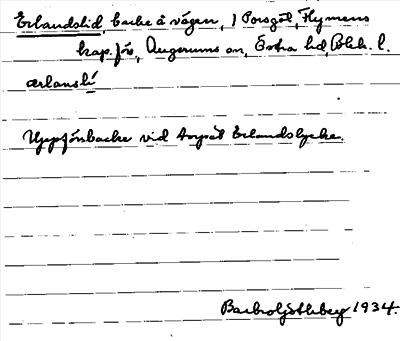 Erlandslid, backe å vägen, 1 Torsgöl, Flymens
kap.förs, Augerums sn, Östra hd, Blek. l.
ærlansli
Uppförsbacke vid torpet Erlandslycke.
1934.